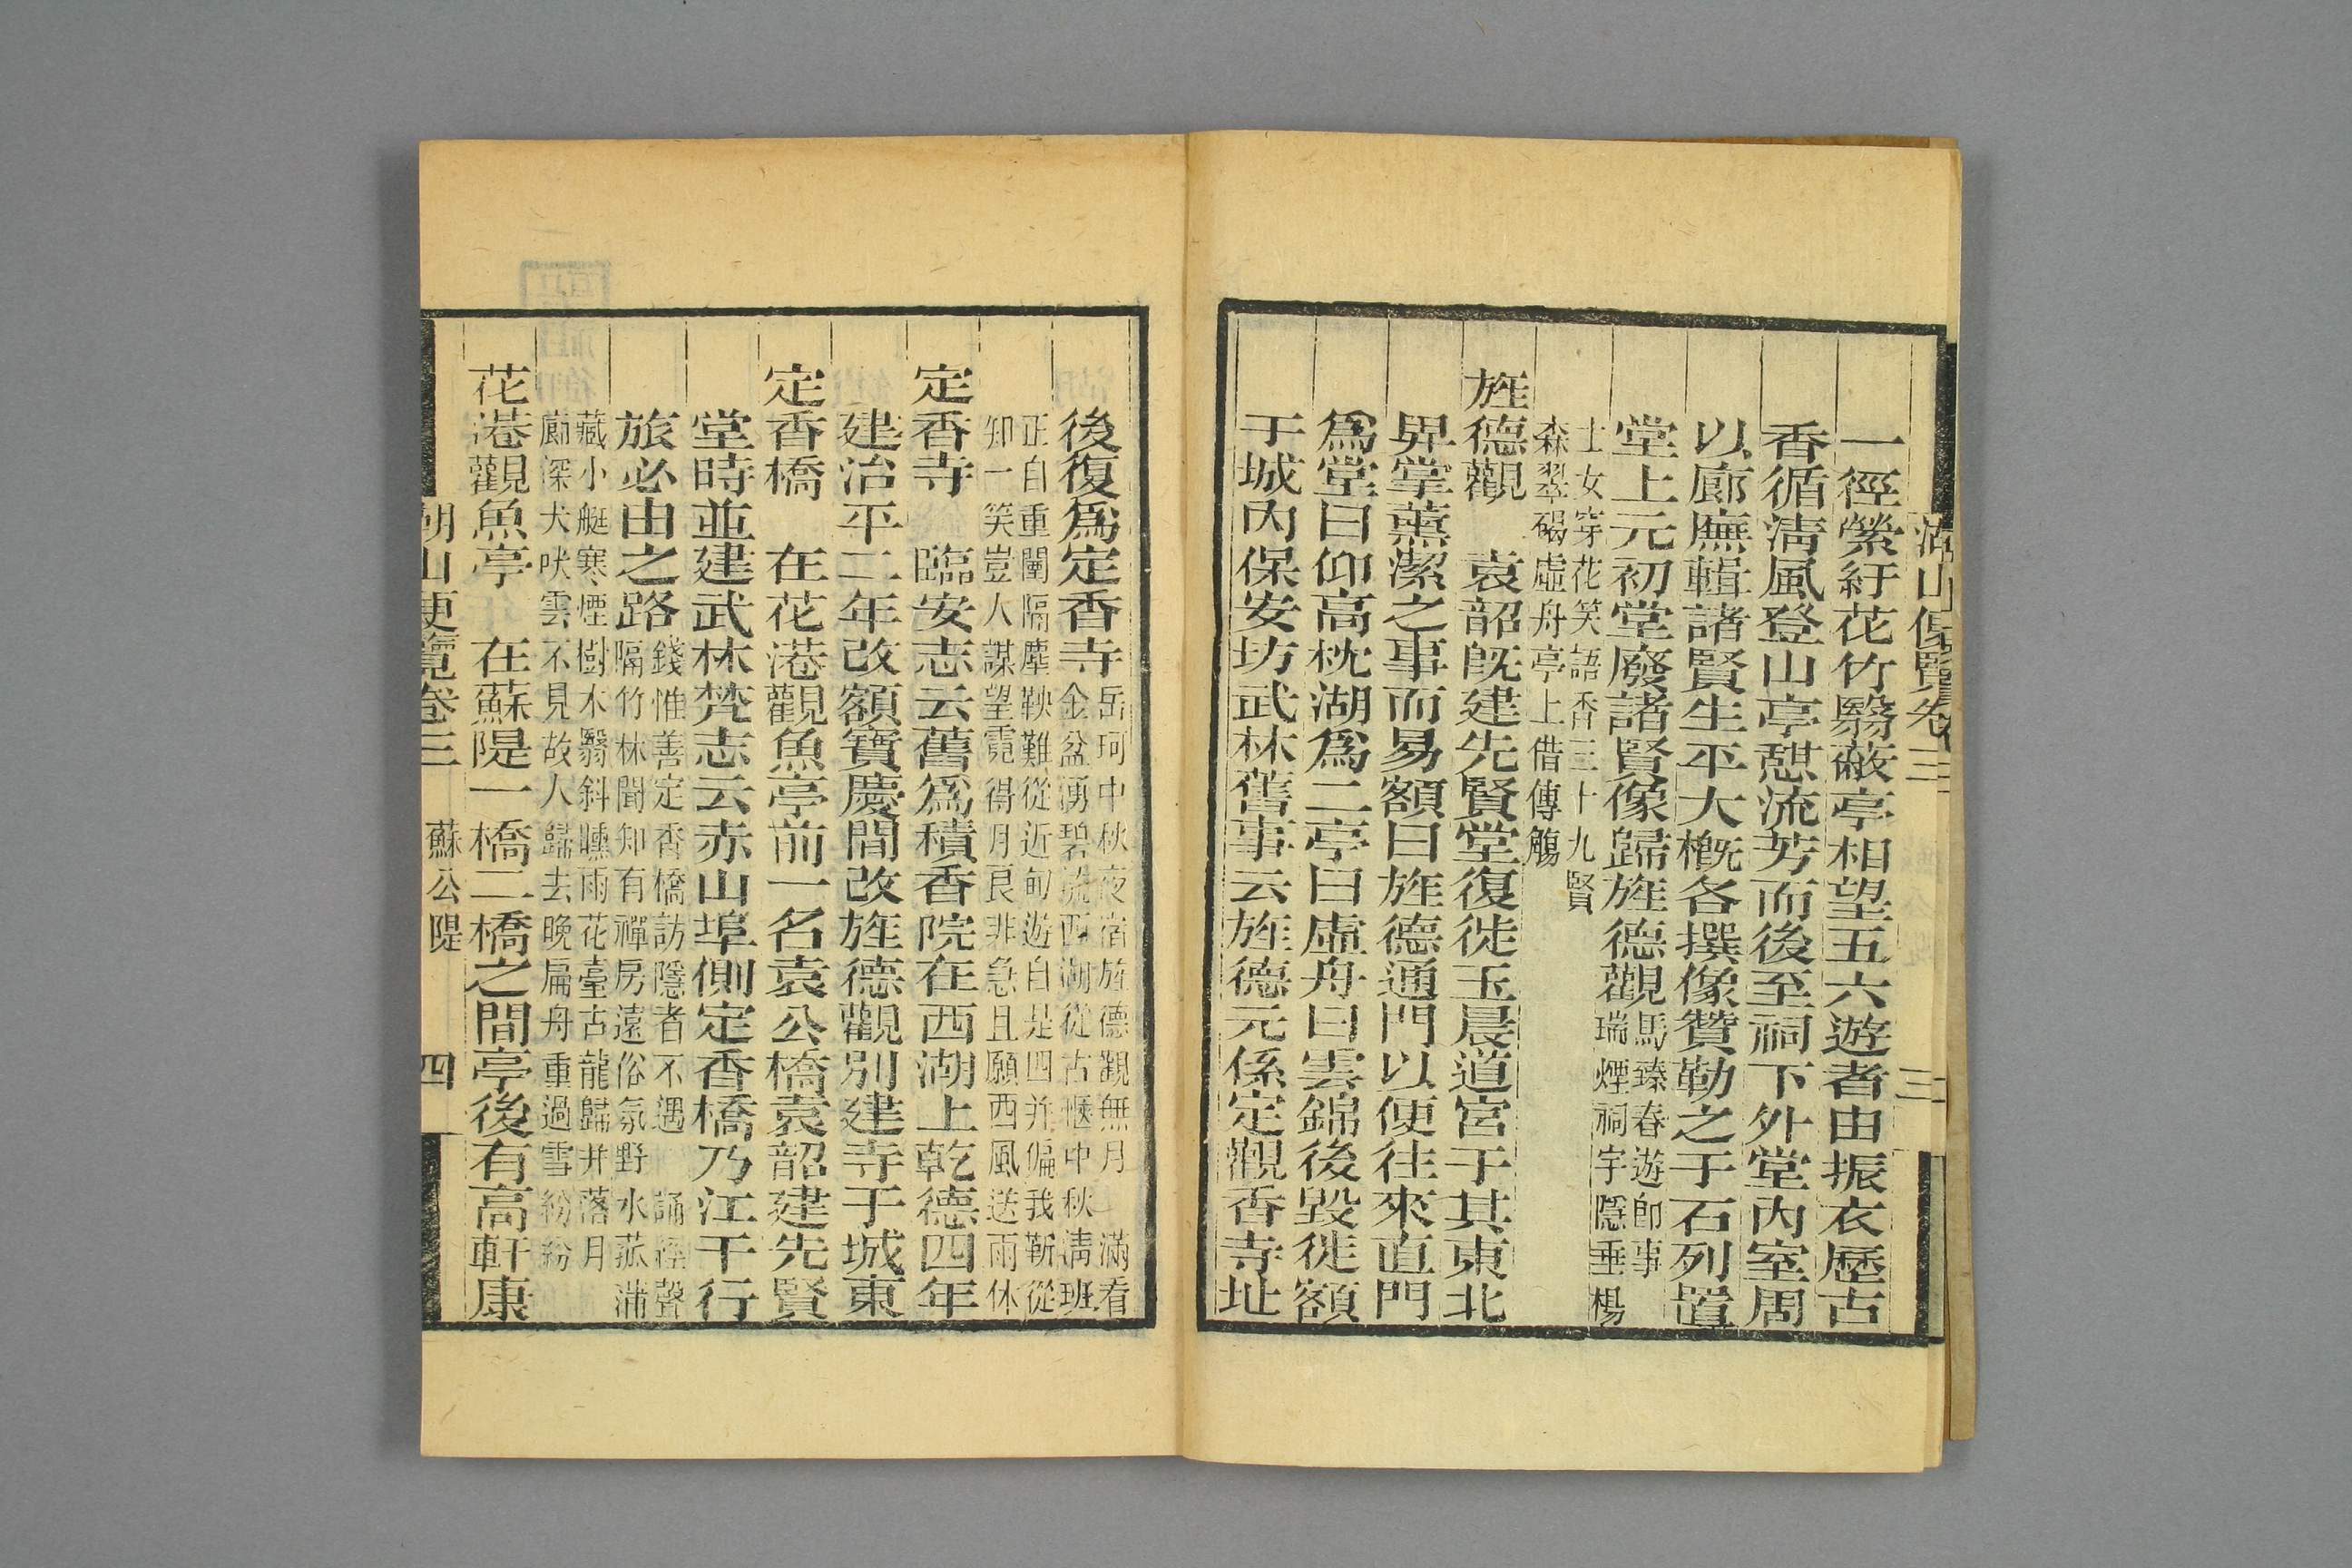 湖山便覽卷三　三
一徑縈紆花竹翳蔽亭相望五六遊者由振衣歷古
香循清風登山亭憩流芳而後至祠下外堂內室周
以廊廡輯諸賢生平大槪各撰像贊勒之于石列置
堂上元初堂廢諸賢像歸旌德觀馬臻春遊卽事
瑞煙祠宇隱垂楊
士女穿花笑語香三十九賢
森翠碣虛舟亭上借傳觴
旌德觀　袁韶旣建先賢堂復徙玉晨道宮于其東北
畀掌薰潔之事而易額曰旌德通門以便往來直門
爲堂曰仰高枕湖爲二亭曰虛舟曰雲錦後毀徙額
于城內保安坊武林舊事云旌德元係定觀香寺址
後復爲定香寺岳珂中秋夜宿旌德觀無月　滿看
金盆湧碧流西湖從古愜中秋淸班
正自重闉隔塵鞅難從近甸遊自是四并偏我靳從
知一笑豈人謀望霓得月良非急且願西風送雨休
定香寺　臨安志云舊爲積香院在西湖上乾德四年
建治平二年改額寶慶間改旌德觀別建寺于城東
定香橋　在花港觀魚亭前一名袁公橋袁韶建先賢
堂時並建武林梵志云赤山埠側定香橋乃江干行
旅必由之路錢惟善定香橋訪隱者不遇　誦經聲
隔竹林聞知有禪房遠俗氛野水菰蒲
藏小艇寒煙樹木翳斜曛雨花臺古龍歸井落月
廊深犬吠雲不見故人歸去晚扁舟重過雪紛紛
花港觀魚亭　在蘇隄一橋二橋之間亭後有高軒康
湖山便覽卷三　蘇公隄　四